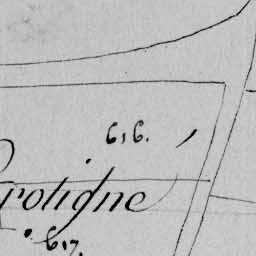 616.
rotigne
617.